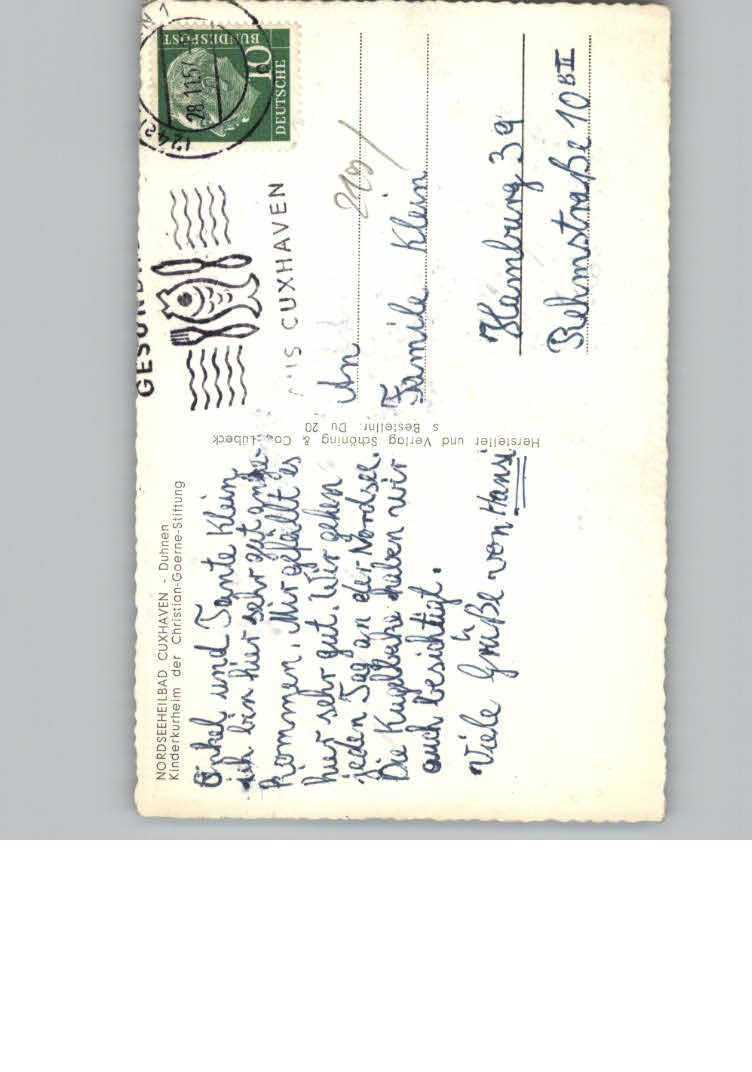 NORDSEEHEILBAD CUXHAVEN - Duhnen
Kinderkurheim der Christian-Goerne-Stiftung
Onkel und Tante Klein
ich bin hier sehr gut ange-
kommen. Mir gefällt es
hier sehr gut. Wir gehen
jeden Tag an der Nordsee.
Die Kugelbake haben wir
auch besichtigt.
Viele Grüße von Hansi
Hersteller und Verlag Schöning & Co., Lübeck
s Bestellnr. Du 20
DEUTSCHE
BUNDESPOST
10
28.11.57
AUS CUXHAVEN
An
Familie Klein
Hamburg 39
Rehmstraße 10 B II